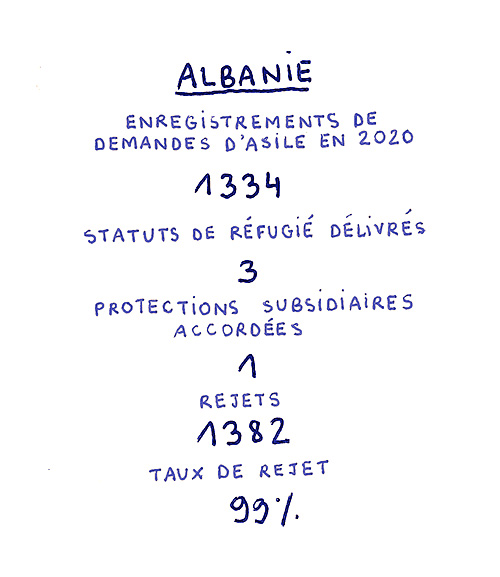 ALBANIE
ENREGISTREMENTS DE
DEMANDES D'ASILE EN 2020
1334
STATUTS DE RÉFUGIÉ DÉLIVRÉS
3
PROTECTIONS SUBSIDIAIRES
ACCORDÉES
1
REJETS
1382
TAUX DE REJET
99%